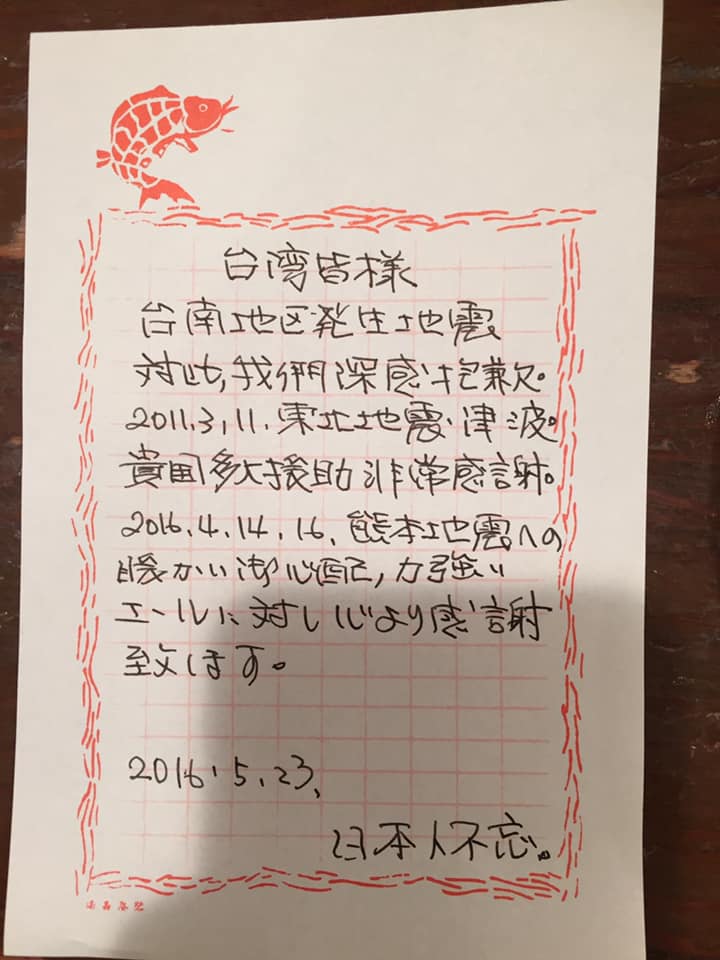 台湾皆様
台南地区発生地震、
対此,我們深感抱歉。
2011.3.11.東北地震・津波。
貴国多大援助非常感謝。
2016.4.14.16.熊本地震への
暖かい御心配,力強い
エールに対し心より感謝
致します。
2016.5.23.
日本人不忘。